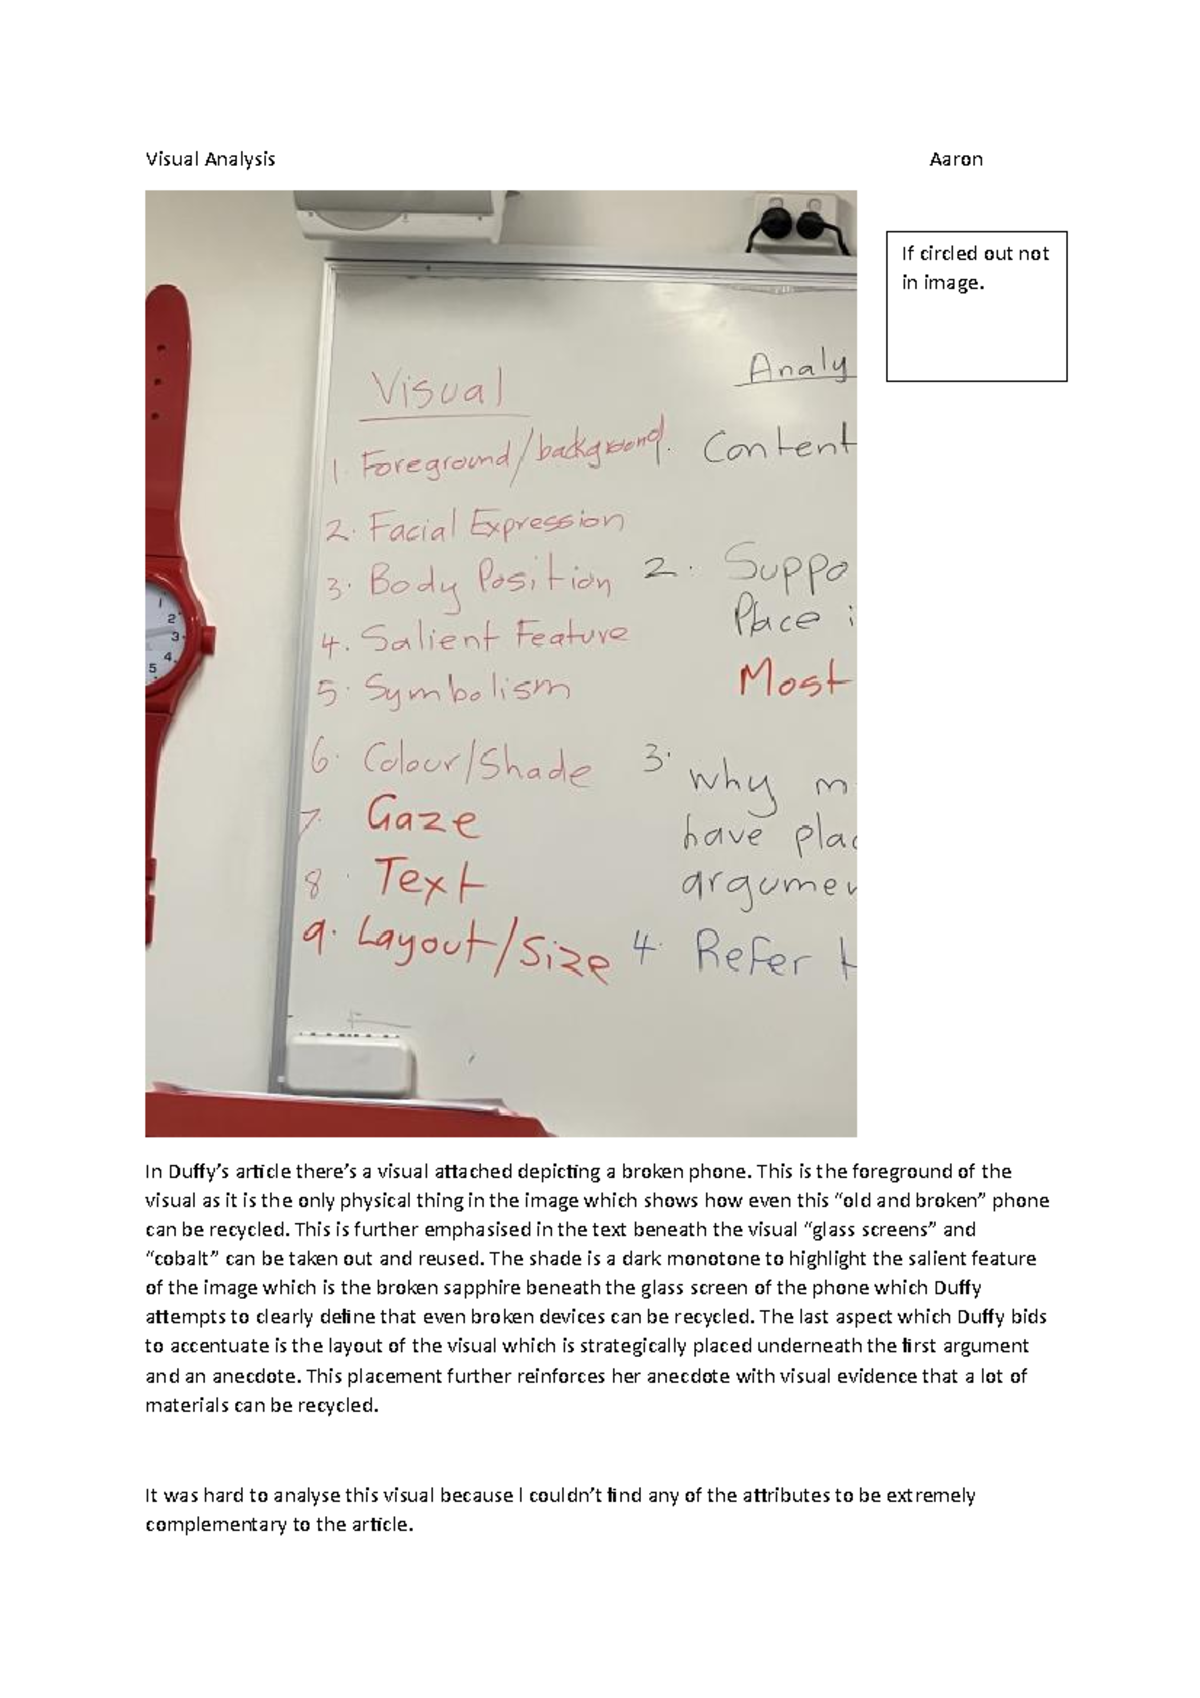 Visual Analysis Aaron
If circled out not
in image.
Visual
1. Foreground/background.
2. Facial Expression
3. Body Position
4. Salient Feature
5. Symbolism
6. Colour/Shade
7. Gaze
8. Text
9. Layout/Size
Analy
Content
2. Suppo
Place i
Most
3. Why m
have plac
argumen
4. Refer t
1
2
3
4
5
In Duffy’s article there’s a visual attached depicting a broken phone. This is the foreground of the
visual as it is the only physical thing in the image which shows how even this “old and broken” phone
can be recycled. This is further emphasised in the text beneath the visual “glass screens” and
“cobalt” can be taken out and reused. The shade is a dark monotone to highlight the salient feature
of the image which is the broken sapphire beneath the glass screen of the phone which Duffy
attempts to clearly define that even broken devices can be recycled. The last aspect which Duffy bids
to accentuate is the layout of the visual which is strategically placed underneath the first argument
and an anecdote. This placement further reinforces her anecdote with visual evidence that a lot of
materials can be recycled.
It was hard to analyse this visual because I couldn’t find any of the attributes to be extremely
complementary to the article.